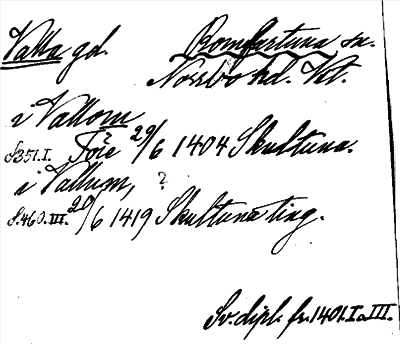 Valla gd. Romfartuna sn.
Norrbo hd. Vstm.
i Vallom
S351.I. Före 29/6 1404 Skultuna.
i Vallum, ?
S.460.III. 20/6 1419 Skultuna ting.
Sv. dipl. fr. 1401. I o. III.